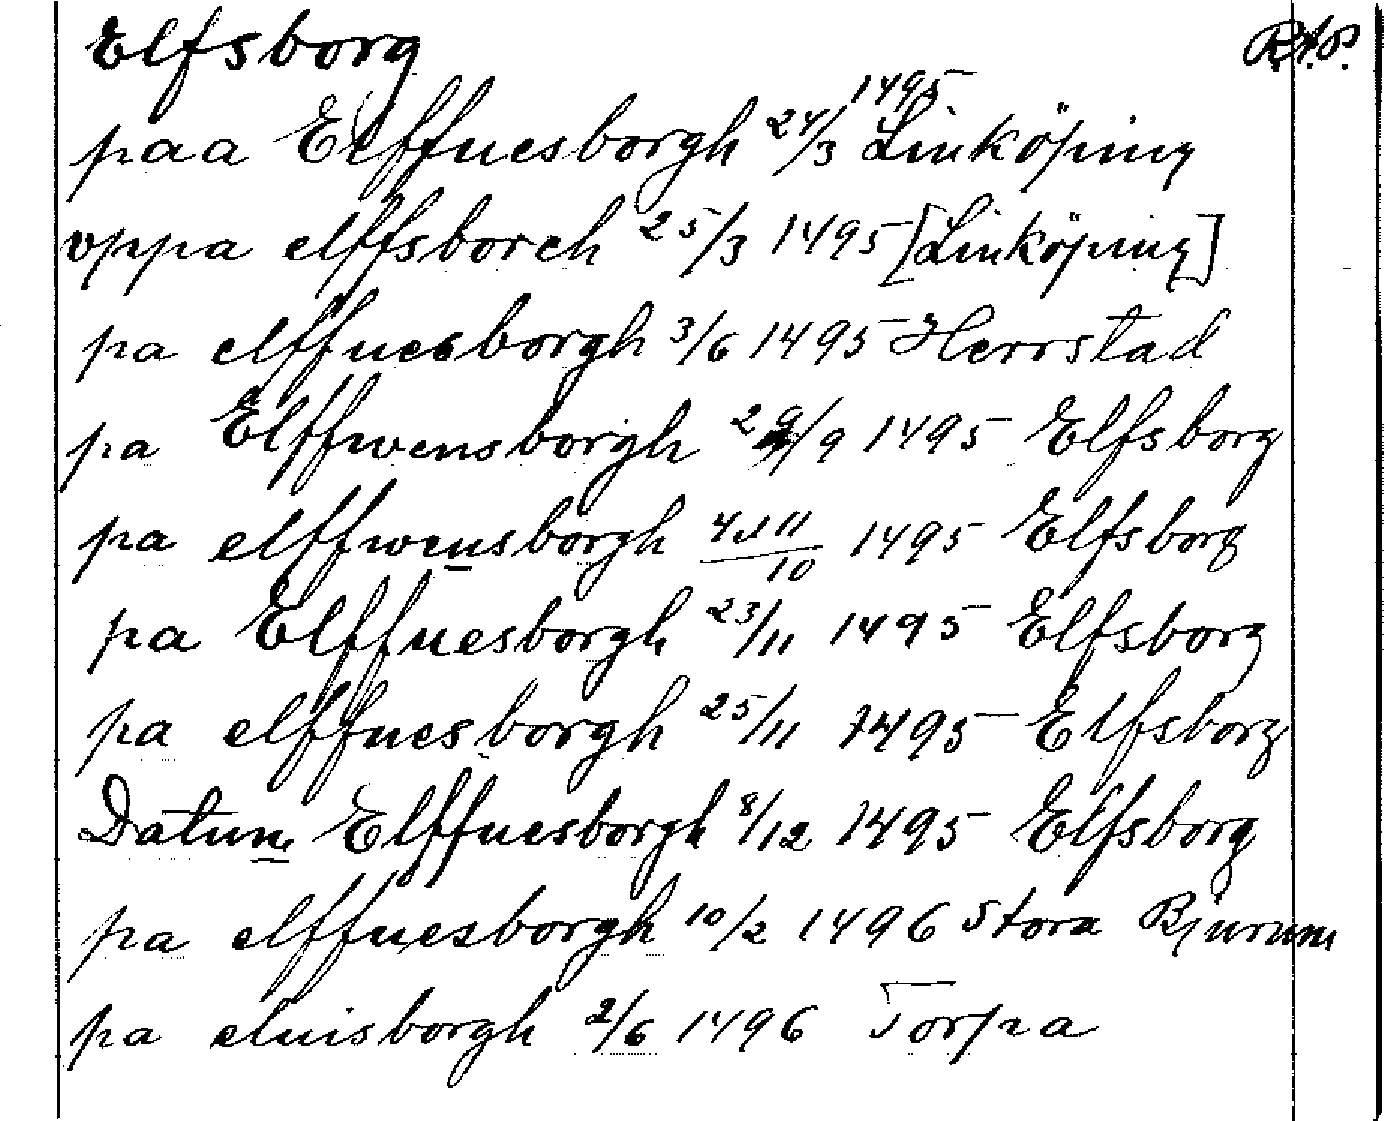 Elfsborg R.A.P.
paa Elffuesborgh 24/3 1495 Linköping
vppa elffsborch 25/3 1495 [Linköping]
pa elffuesborgh 3/6 1495 Herrstad
pa Elffwensborgh 29/9 1495 Elfsborg
pa elffwensborgh 4 11/10 1495 Elfsborg
pa Elffuesborgh 23/11 1495 Elfsborg
pa elffuesborgh 25/11 1495 Elfsborg
Datum Elffuesborgh 8/12 1495 Elfsborg
pa elffuesborgh 10/2 1496 Stora Bjurum
pa eluisborgh 2/6 1496 Torpa